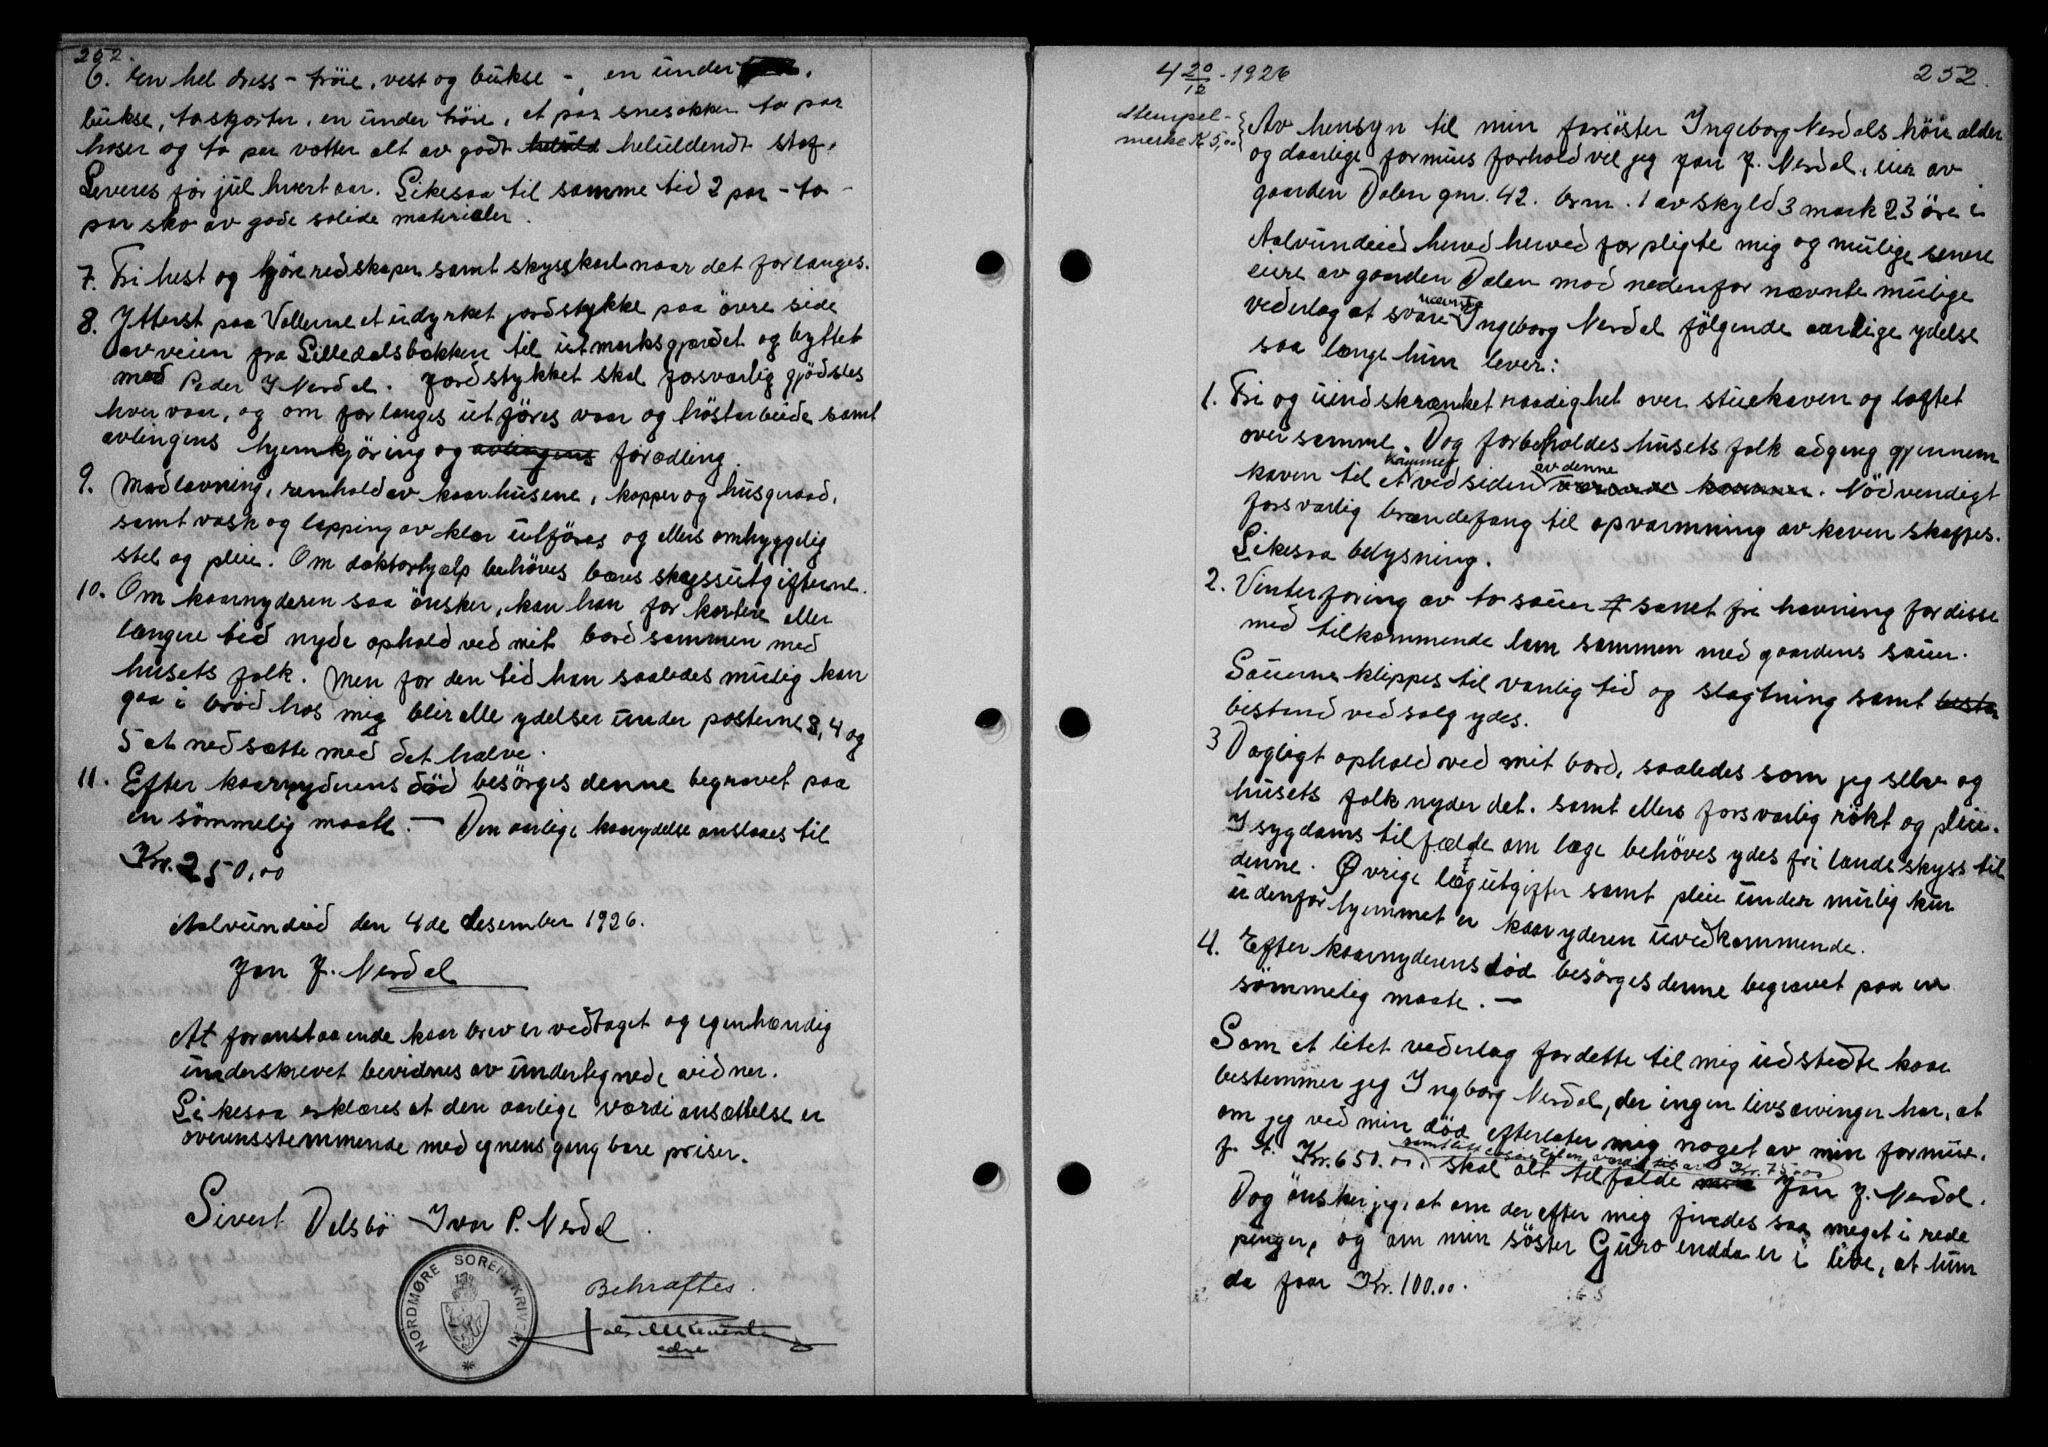 252.
6. En hel dress - trøie, vest og bukse -, en under
bukse, to skjorter, en under trøie, et par snesokker to par
hoser og to par vøtter alt av godt heluld heluldendt stof.
Leveres før jul hvert aar. Likesaa til samme tid 2 par - to -
par sko av gode solide materialer.
7. Fri hest og kjøreredskaper samt skysskarl naar det forlanges.
8. Ytterst paa Vollerne et udyrket jordstykke paa øvre side
av veien fra Lilledalsbækken til utmarksgjærdet og byttet
med Peder J Nerdal. Jordstykket skal forsvarlig gjødsles
hver vaar, og om forlanges utføres vaar og høstarbeide samt
avlingens hjemkjøring og avlingens forædling.
9. Madlavning, renhold av kaarhusene, kopper og husgeraad,
samt vask og lapping av klær utføres og ellers omhyggelig
stel og pleie. Om doktorhjælp behøves bæres skyssutgifterne.
10. Om kaarnyderen saa ønsker, kan han for kortere eller
længere tid nyde ophold ved mit bord sammen med
husets folk. Men for den tid han saaledes mulig kan
gaa i brød hos mig blir alle ydelser under posterne 3, 4 og
5 at nedsætte med det halve.
11. Efter kaarnyderens død besørges denne begravet paa
en sømmelig maate. - Den aarlige kaarydelse anslaaes til
Kr. 250,00
Aalvundeid den 4de desember 1926.
Jon J. Nerdal
At foranstaaende kaarbrev er vedtaget og egenhændig
underskrevet bevidnes av undertegnede vidner.
Likesaa erklæres at den aarlige værdiansættelse er
overensstemmende med egnens gangbare priser.
Sivert Dalsbø Ivar P. Nerdal.
NORDMØRE SORENSKRIVERI
Bekræftes.
edre
4 20/12 - 1926
252.
Stempel-
merke K 5,00
Av hensyn til min farsøster Ingeborg Nerdals høie alder
og daarlige formues forhold vil jeg Jon J. Nerdal, eier av
gaarden Dalen gnr. 42. brnr. 1 av skyld 3 mark 23 øre i
Aalvundeid herved herved forpligte mig og mulige senere
eiere av gaarden Dalen mod nedenfor nævnte mulige
vederlag at svare nævnte Ingeborg Nerdal følgende aarlige ydelse
saa længe hun lever:
1. Fri og uindskrænket raadighet over stuekaven og loftet
over samme. Dog forbeholdes husets folk adgang gjennem
kaven til et kammer ved siden av denne værende kammer. Nødvendigt
forsvarlig brændefang til opvarmning av kaven skaffes.
Likesaa belysning.
2. Vinterforing av to sauer samt fri havning for disse
med tilkommende lam sammen med gaardens sauer.
Sauerne klippes til vanlig tid og slagtning samt besta
bistand ved salg ydes.
3 Dagligt ophold ved mit bord, saaledes som jeg selv og
husets folk nyder det. samt ellers forsvarlig røkt og pleie.
I sygdoms tilfælde om læge behøves ydes fri landsskyss til
denne. Øvrige lægeutgifter samt pleie under mulig kur
udenfor hjemmet er kaaryderen uvedkommende.
4. Efter kaarnyderens død besørges denne begravet paa en
sømmelig maate. -
Som et litet vederlag for dette til mig udstedte kaar
bestemmer jeg Ingborg Nerdal, der ingen livsarvinger har, at
om jeg ved min død efterlater mig noget av min formue,
f. t. Kr. 650.00, skal alt tilfalde Jon J. Nerdal.
Dog ønsker jeg, at om der efter mig findes saa meget i rede
penger, og om min søster Guro endda er i live, at hun
da faar Kr. 100.00.